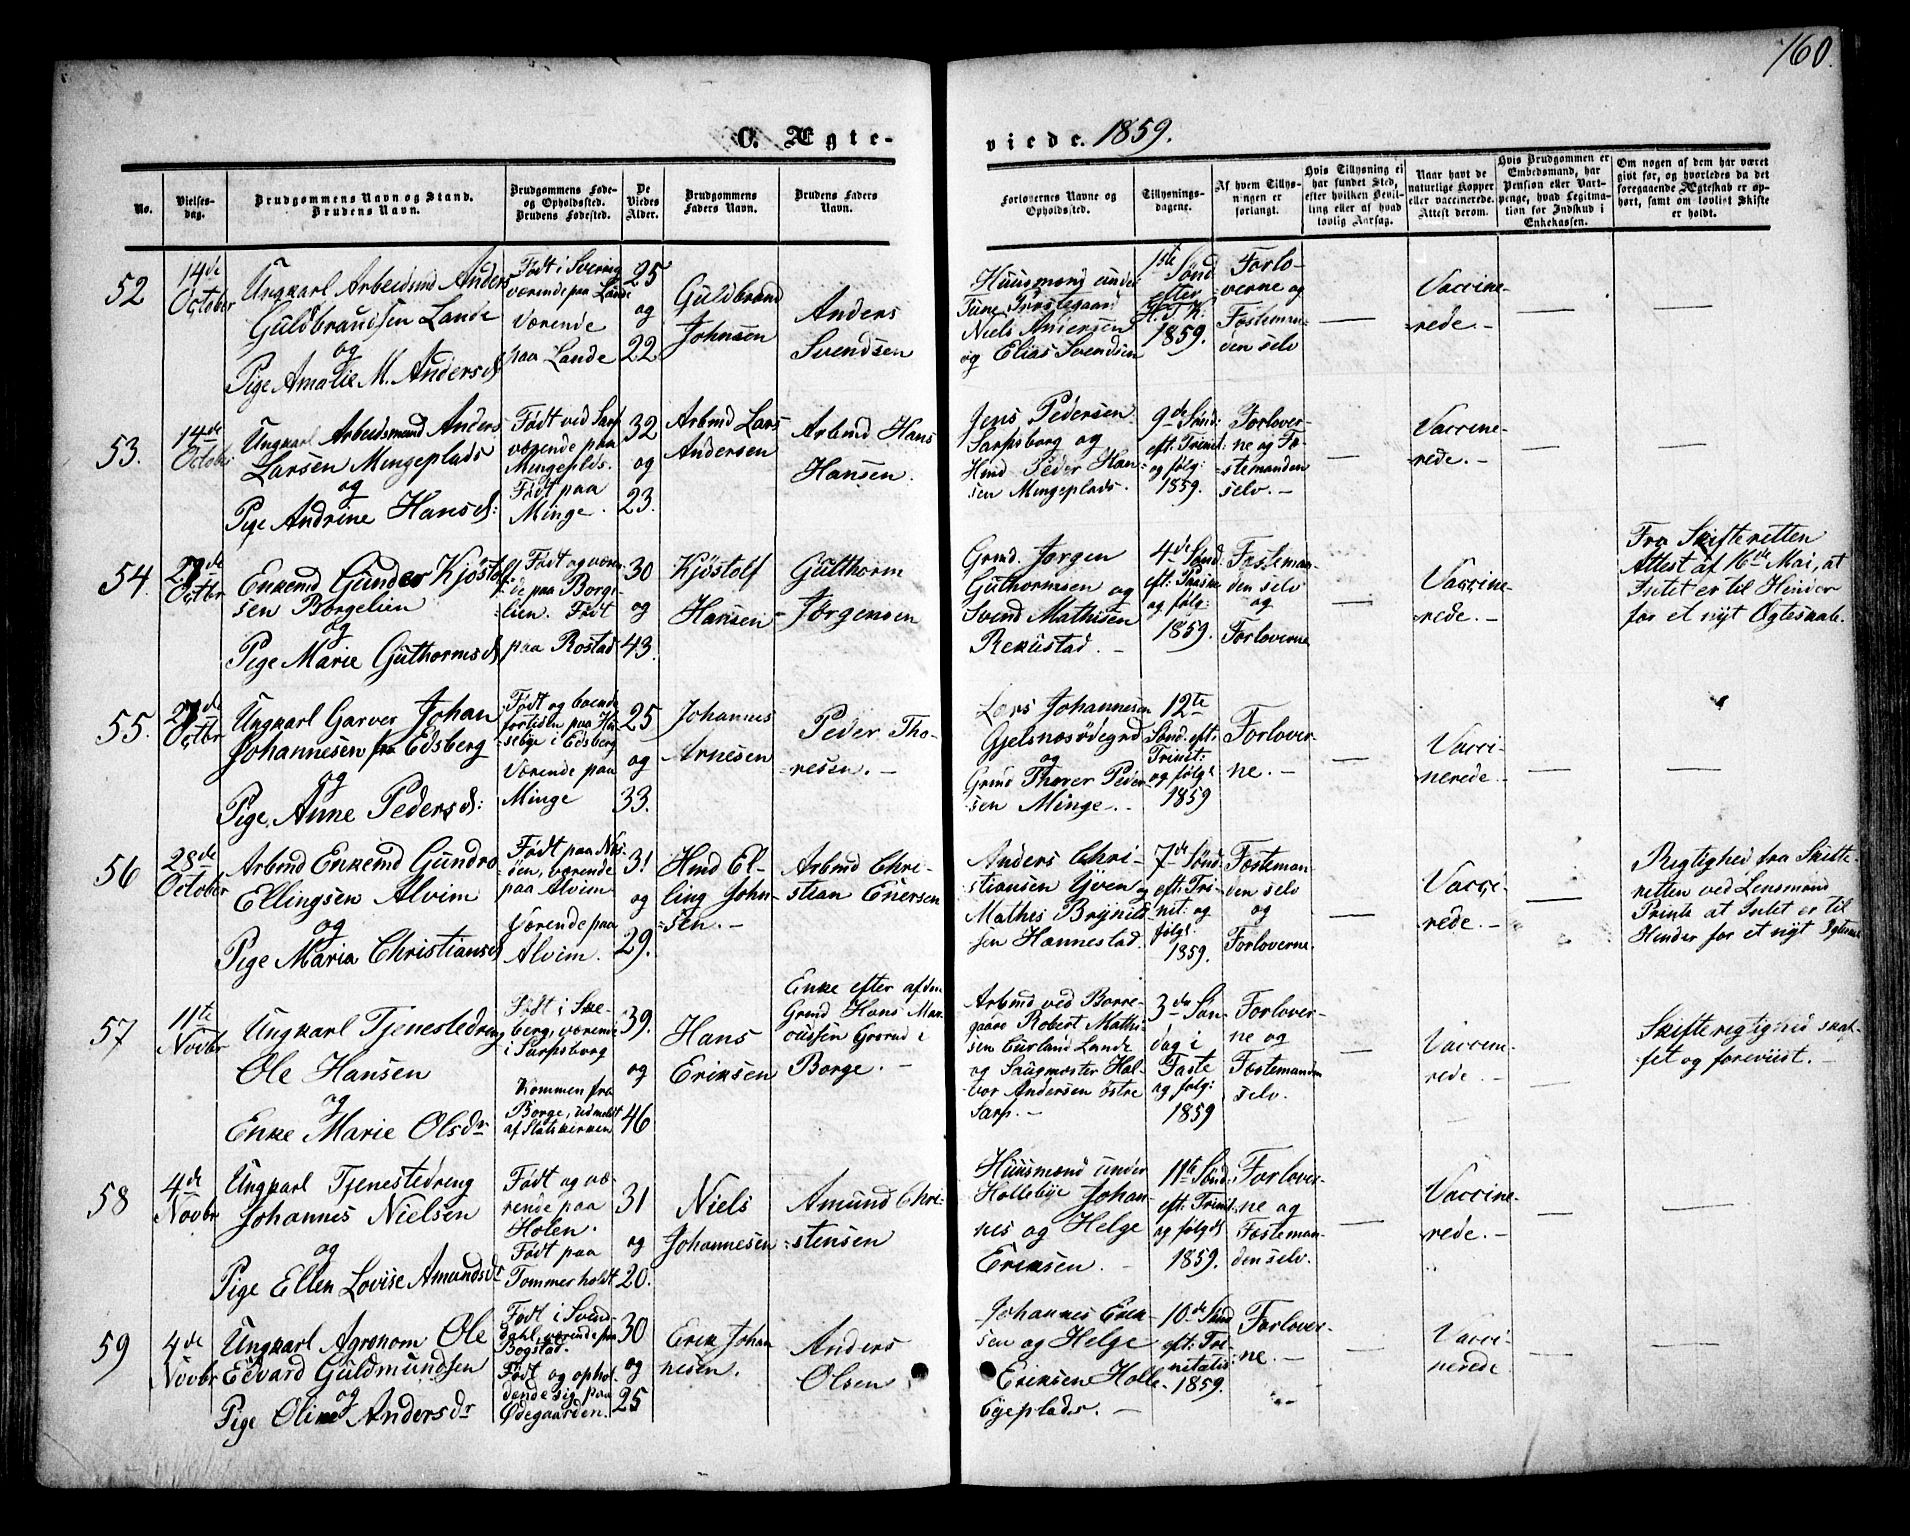 160.
C. Ægte-
viede. 1859.
No.
Vielses-
dag.
Brudgommens Navn og Stand.
Brudens Navn.
Brudgommens Føde-
og Opholdssted.
Brudens Fødested.
De
Viedes
Alder.
Brudgommens
Faders Navn.
Brudens Faders
Navn.
Forlovernes Navne og
Opholdssted.
Tillysnings-
dagene.
Af hvem Tillys-
ningen er
forlangt.
Hvis Tillysning ei
har fundet Sted,
efter hvilken Bevil-
ling eller af hvad
lovlig Aarsag.
Naar havt de
naturlige Kopper
eller vaccinerede.
Attest derom.
Hvis Brudgommen er
Embedsmand, har
Pension eller Vart-
penge, hvad Legitima-
tion for Indskud i
Enkekassen.
Om nogen af dem har været
gift før, og hvorledes da det
foregaaende Ægteskab er op-
hørt, samt om lovligt Skifte
er holdt.
52
14de
October
Ungkarl Arbeidsmd Anders
Guldbrandsen Lande
og
Pige Amalie M. Andersd
Født i Sverrig
værende paa Lande
Værende
paa Lande
25
og
22
Guldbrand
Johnsen
Anders
Svendsen
Huusmænd under
Tune Præstegaard
Niels Andersen
og Elias Svendsen
1ste Sønd
efter
H. 3 K:
1859.
Forlo-
verne og
Fosteman-
den selv
Vaccine-
rede. -
53.
14de
October
Ungkarl Arbeidsmand Anders
Larsen Mingeplads
og
Pige Andrine Hansd:
Født ved Sarp
værende paa
Mingeplds.
Født paa
Minge.
32
og
23.
Arbmd Lars
Andersen
Arbmd Hans
Hansen.
Jens Pedersen
Sarpsborg og
Hmd Peder Han-
sen Mingeplads.
9de Sønd:
eft: Trinit
og følg:
1859.
Forlover-
ne og Fæ-
stemanden
selv. -
Vaccine-
rede. -
54.
27de
Octbr
Enkemd Gunder Kjöstolf-
sen Borgelien
og
Pige Marie Guthormsd
Født og være-
de paa Borge-
lien. Født
paa Rostad
30
og
43.
Kjöstolf
Hansen
Gutthorm
Jørgensen
Grmd. Jørgen
Guthormsen og
Svend Mathisen
Rekustad. -
4de Sønd
eft: Paaske
og følg:
1859.
Fosteman-
den selv
og
Forloverne
Vaccine-
rede. -
Fra Skifteretten
Attest af 16de Mai, at
Intet er til Hinder
for et nyt Ægteskab.
55.
27de
Octbr
Ungkarl Garver Johan
Johannesen fra Edsberg
og
Pige Anne Pedersd:
Født og boende
fortiden paa Hu-
selbye i Edsberg
Værende paa
Minge
25
og
33.
Johannes
Arnesen
Peder Tho-
resen. -
Lars Johannesen
Gjelsnæsödegrd
og
Grmd Thorer Peder-
sen Minge. -
12te
Sønd. eft:
Trinit:
og følg:
1859
Forlover-
ne. -
Vacci-
nerede. -
56
28de
October
Arbmd Enkemd Gundro
Ellingsen Alvim
og
Pige Maria Christiansd
Født paa Næs-
öen, værende
paa Alvim
Værende paa
Alvim.
31
og
29.
Hmd El-
ling John-
sen. -
Arbmd Chri-
stian Enersen
Anders Chri-
stiansen Yven og
Mathis Brynild-
sen Hannestad.
7de Sønd
eft: Tri-
nit: og
følg:
1859.
Fosteman-
den selv
og
Forloverne.
Vacci-
rede. -
Rigtighed fra Skifte-
retten ved Lensmand
at Intet er til
Hinder for et nyt Ægtesk
57
11te
Novbr
Ungkarl Tjenestedreng
Ole Hansen
og
Enke Marie Olsdr
Født i Ske-
berg, værende
i Sarpsborg
Kommen fra
Borge, udmeldt
af Statskirken
39.
og
46
Hans
Eriksen
Enke efter afden
Grmd Hans Mar-
Borge. -
Arbmd ved Borre-
gaard Robert Mathi-
sen Lande
og Sagmester Hal-
vor Andersen östre
Sarp. -
3die Søn-
dag i
Faste
og følg:
1859
Forlover-
ne og
Fostemanden
selv.
Vaccine-
rede. -
Skifterigtighed skaf-
fet og foreviist. -
58
4de
Novbr
Ungkarl Tjenestedreng
Johannes Nielsen
og
Pige Ellen Lovise Amundsdr
Født og væ-
rende paa
Holen.
Født paa
Tommerholdt
31
og
20.
Niels
Johannesen
Amund Chri-
stensen
Huusmænd under
Hollebye Johan-
nes og Helge
Eriksen. -
11te Sønd
eft: Trinit:
og følgd
1859.
Forlover-
ne og
Fosteman-
den selv.
Vaccine-
rede. -
59
4de
Novbr
Ungkarl Agronom Ole
Edvard Guldmundsen
og
Pige Oline Andersdr
Født i Svend-
dahl, værende paa
Bogstad.
Født og ophol-
dende sig paa
Ødegaarden.
30
og
25
Erik Johan-
nesen.
Anders
Olsen
Johannes Erik-
sen og Helge
Eriksen Holle-
byeplads. -
10de Sønd
eft: Tri-
nitatis:
1859.
Forlover-
ne. -
Vacci-
nerede